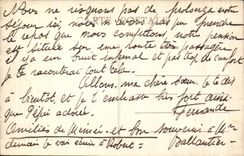 Nous ne risquons pas de prolonger notre
séjour ici, nous ne avons pas pu prendre
le repos que nous comptions, notre pension
est située sur une route très passagère
il y a un bruit infernal et pas de confort
je te raconterai tout cela.
Allons, ma chère Sœur je te dis
à bientôt, et je t'embrasse bien fort ainsi
que Pépé adoré.
Fernande
Amitiés de Mémé et bon souvenir à Mme
demain je vais écrire à Robert. Ballantier